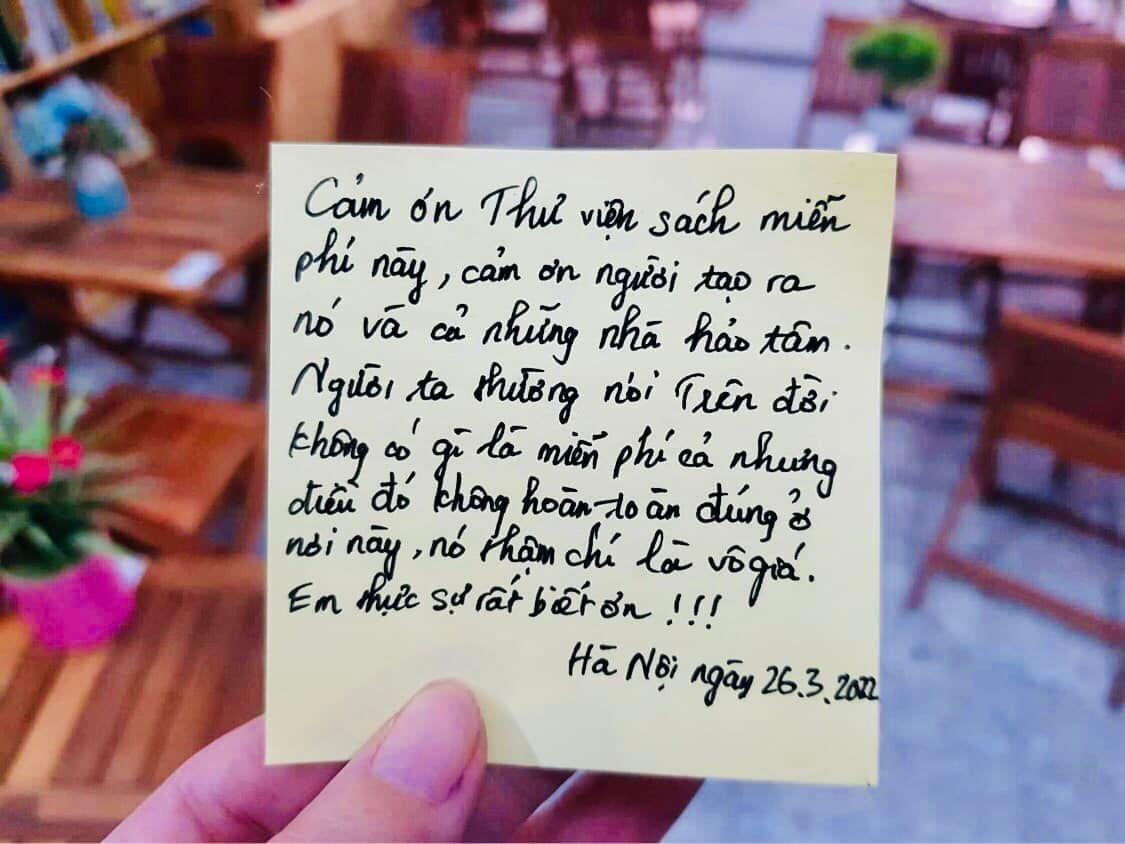 Cảm ơn Thư viện sách miễn
phí này, cảm ơn người tạo ra
nó và cả những nhà hảo tâm.
Người ta thường nói Trên đời
không có gì là miễn phí cả nhưng
điều đó không hoàn toàn đúng ở
nơi này, nó thậm chí là vô giá.
Em thực sự rất biết ơn !!!
Hà Nội ngày 26.3.2022